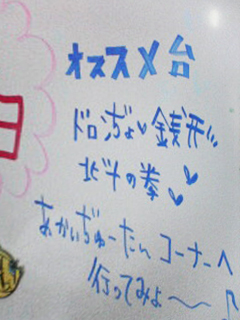 オススメ台
ドロンぢょ♥銭形!!
北斗の拳♥♥
あかいぢゅーたんコーナーへ
行ってみよ〜〜♪